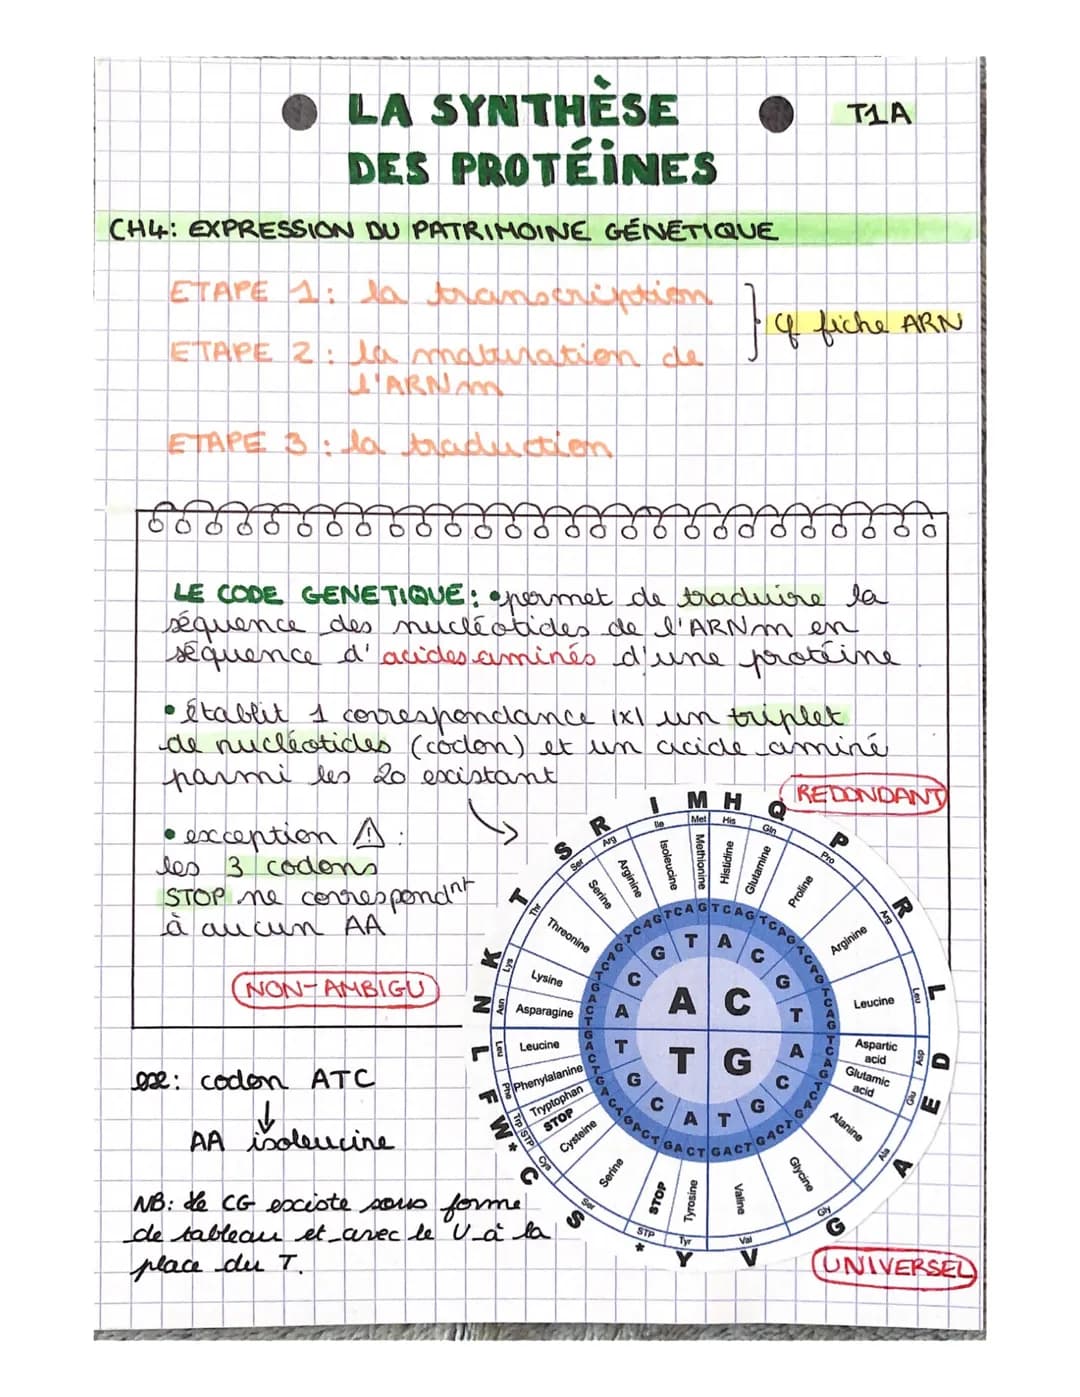 LA SYNTHÈSE
DES PROTÉINES
T1A
CH4: EXPRESSION DU PATRIMOINE GÉNÉTIQUE
ETAPE 1: la transcription
ETAPE 2: la maturation de
l'ARNm
cf fiche ARN
ETAPE 3: la traduction
LE CODE GENETIQUE: •permet de traduire la
séquence des nucléotides de l'ARNm en
séquence d'acides aminés d'une protéine
•établit 1 correspondance
un triplet
de nucléotides (codon) et un acide aminé
parmi les 20 existant
REDONDANT
•exception ⚠ :
les 3 codons
STOP ne correspondnt
à aucun AA
NON-AMBIGU
ex: codon ATC
↓
AA isoleucine
NB: le CG existe sous forme
de tableau et avec le U à la
place du T.
UNIVERSEL
I M H Q P R L D E A G V Y * S C * W F L N K T S R
Ile Met His Gln Pro Arg Leu Asp Glu Ala Gly Val Tyr STP Ser Cys STP Trp Phe Leu Asn Lys Thr Ser Arg
Isoleucine
Methionine
Histidine
Glutamine
Proline
Arginine
Leucine
Aspartic
acid
Glutamic
acid
Alanine
Glycine
Valine
Tyrosine
STOP
Serine
Cysteine
STOP
Tryptophan
Phenylalanine
Leucine
Asparagine
Lysine
Threonine
Serine
Arginine
G T A C
C G
A T
A C
T G
T A
G C
C A T G